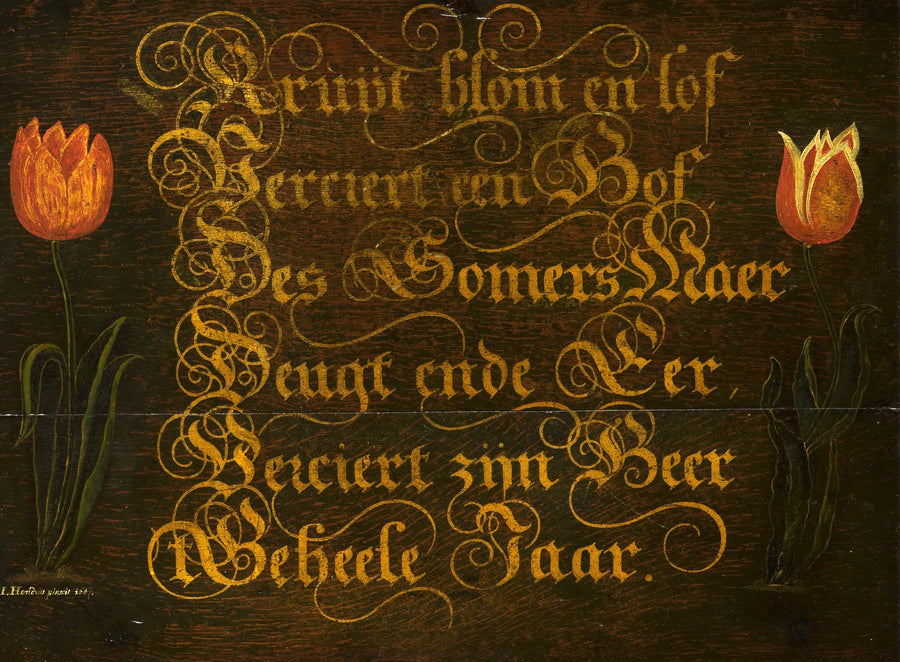 Kruÿt blom en lof
Verciert een Hof,
Des Somers Maer
Deugt ende Eer,
Verciert zijn Heer
tGeheele Jaar.
I. Hondius pinxit